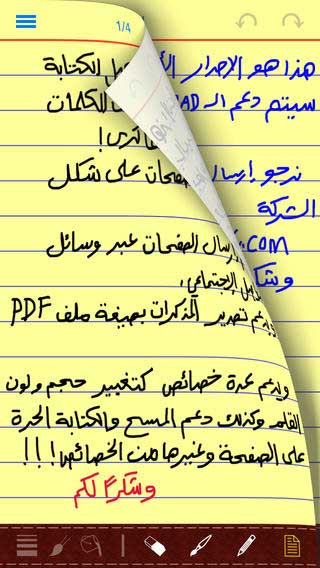 1/4
هذا هو الإصدار الكتابة
سيتم دعم الـ الكلمات
نرجو على شكل
الشركة
.com الصفحات عبر وسائل
الإجتماعي،
ويدعم تصدير المذكرات بصيغة ملف PDF
ويدعم عدة خصائص كتغيير حجم ولون
القلم وكذلك دعم المسح والكتابة الحرة
على الصفحة وغيرها من الخصائص!!!
وشكراً لكم